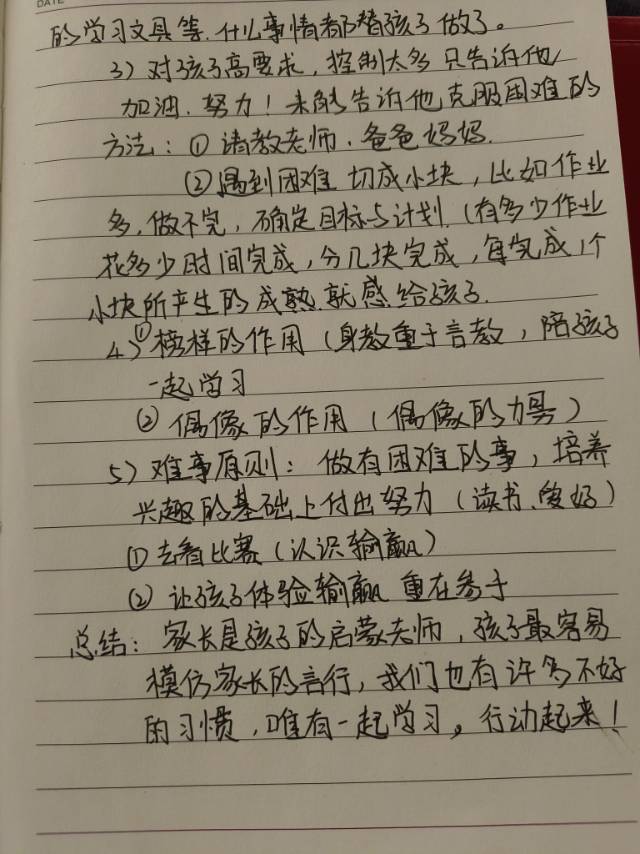 DATE
的学习文具等.什么事情都替孩子做了。
3) 对孩子高要求,控制太多 只告诉他
加油.努力!未能告诉他克服困难的
方法:① 请教老师.爸爸妈妈.
② 遇到困难 切成小块,比如作业
多,做不完,确定目标与计划.(有多少作业
花多少时间完成,分几块完成,每完成1个
小块所产生的成熟.就感给孩子.
4) ① 榜样的作用(身教重于言教,陪孩子
一起学习
② 偶像的作用(偶像的力量)
5) 难事原则:做有困难的事,培养
兴趣的基础上付出努力(读书、爱好)
① 去看比赛(认识输赢)
② 让孩子体验输赢 重在参于
总结:家长是孩子的启蒙老师,孩子最容易
模仿家长的言行,我们也有许多不好
的习惯,唯有一起学习。行动起来!